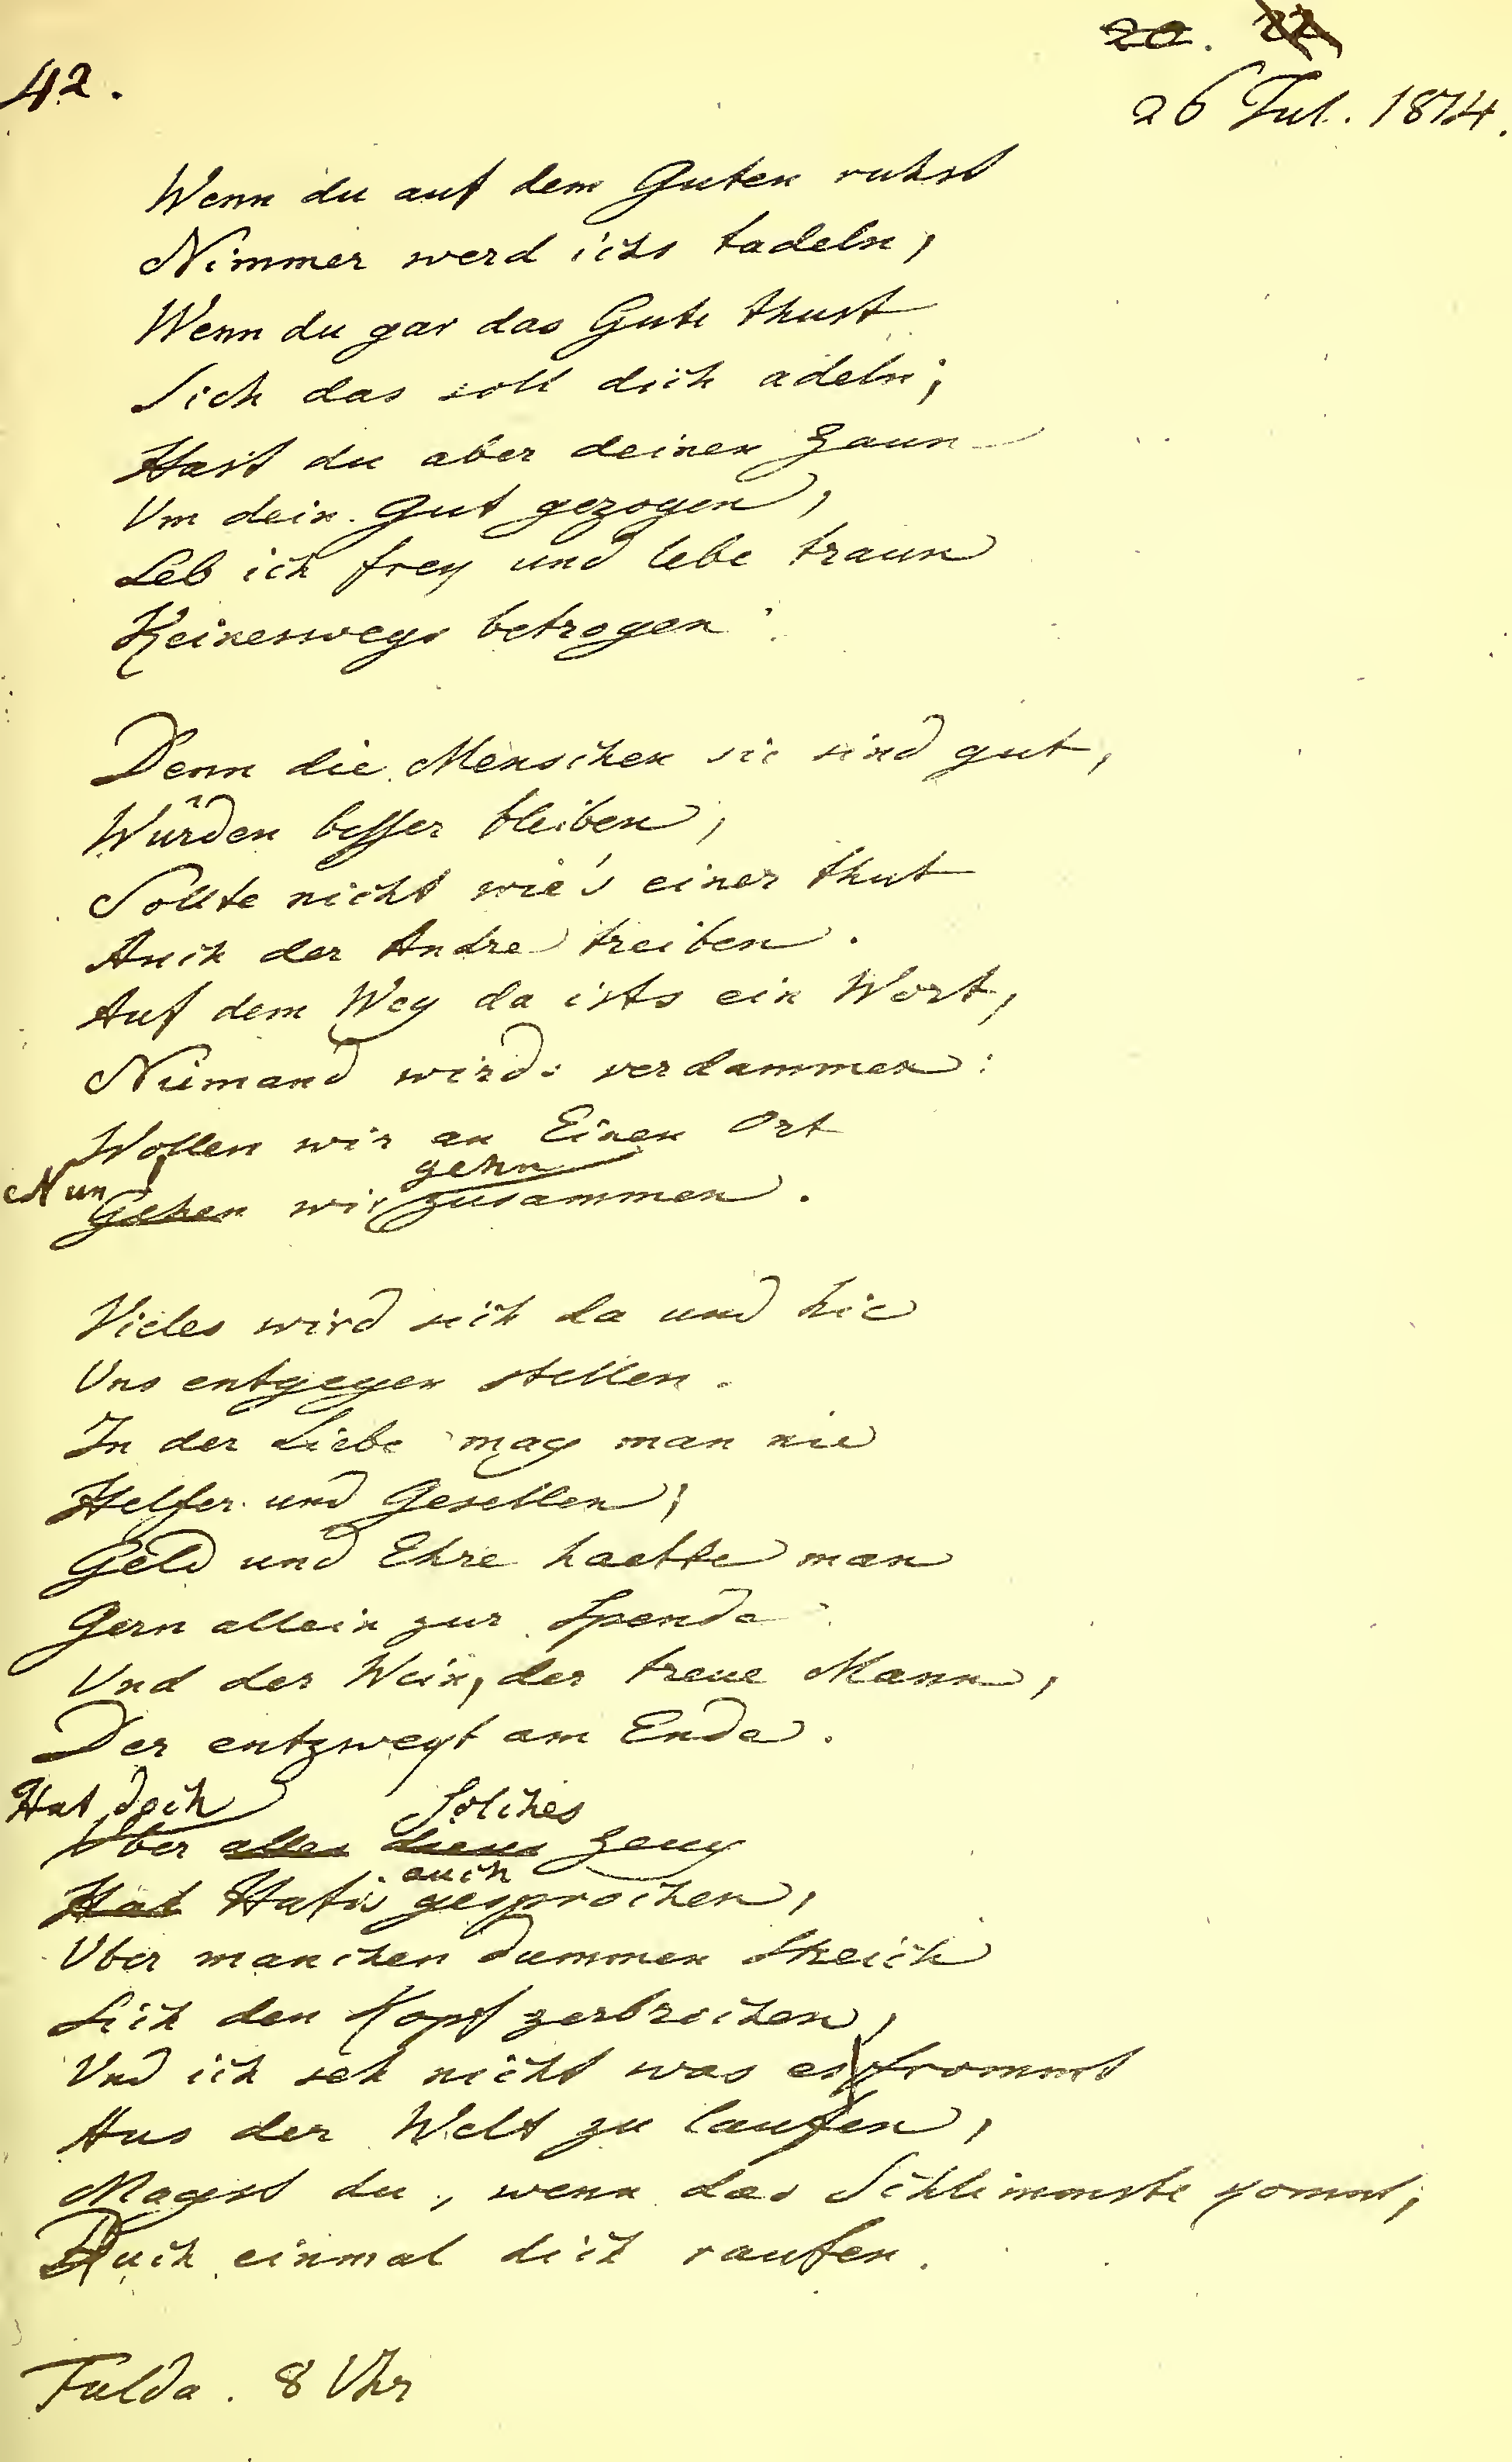 20. 22
42.
26 Jul. 1814.
Wenn du auf dem Guten ruhst
Nimmer werd ichs tadeln,
Wenn du gar das Gute thust
Sieh das soll dich adeln;
Hast du aber deinen Zaun
Um dein Gut gezogen,
Leb ich frey und lebe traun
Keineswegs betrogen.
Denn die Menschen sie sind gut,
Würden besser bleiben,
Sollte nicht wie's einer thut
Auch der Andre treiben.
Auf dem Weg da ists ein Wort,
Niemand wirds verdammen:
Wollen wir an Einen Ort
gehn
Nun Gehen wir zusammen.
Vieles wird sich da und hie
Uns entgegen stellen.
In der Liebe mag man nie
Helfer und Gesellen,
Geld und Ehre haette man
Gern allein zur Spende
Und der Wein, der treue Mann,
Der entzweyt am Ende.
Hat doch Solches
Über alles dieses Zeug
auch
Hat Hafis gesprochen,
Über manchen dummen Streich
Sich den Kopf zerbrochen,
Und ich seh nicht was es frommt
Aus der Welt zu laufen,
Magst du, wenn das Schlimmste kommt,
Auch einmal dich raufen.
Fulda. 8 Uhr